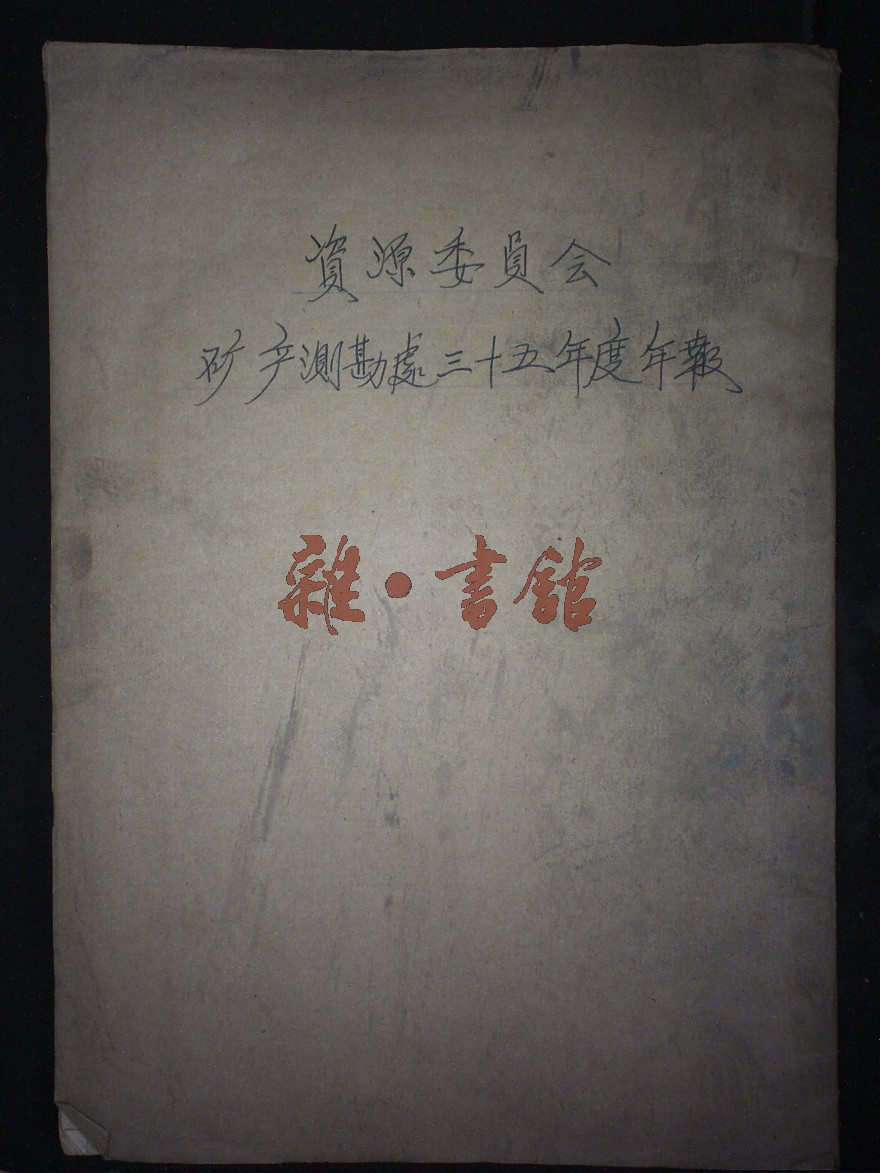 資源委員会
矿产測勘處三十五年度年報
雜·書館